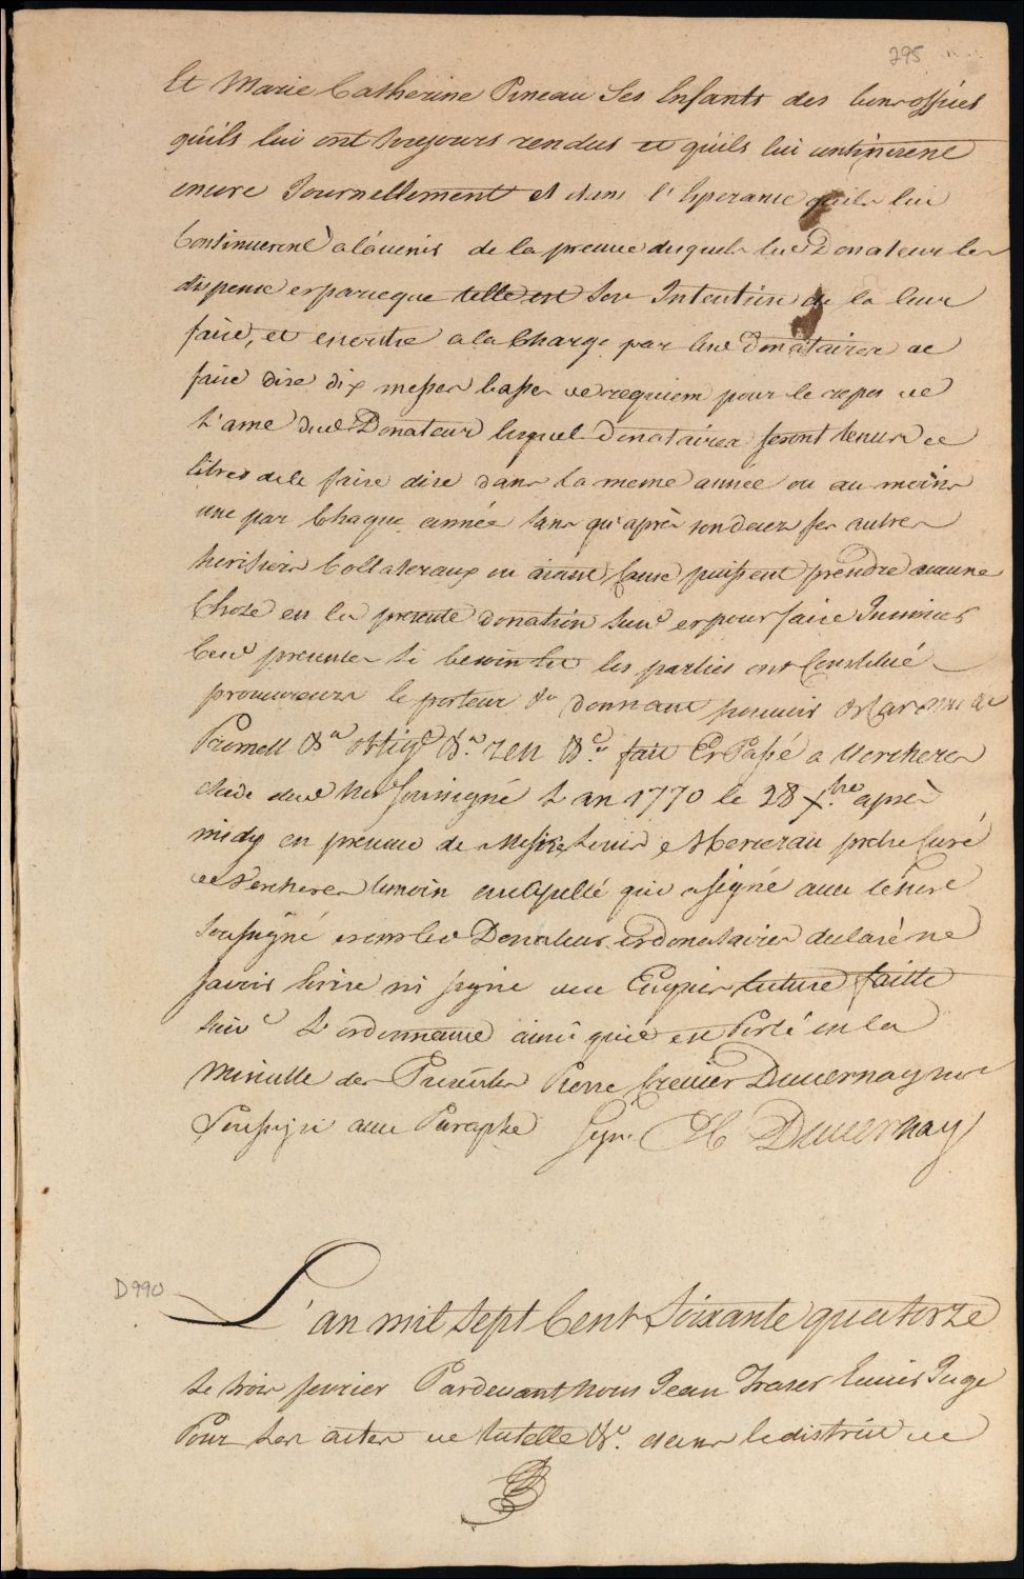 295
Et Marie Catherine Pineau Ses Enfants des bons offices
qu'ils lui ont toujours rendus et qu'ils lui continuent
encore Journellement et dans l'Esperance qu'ils lui
Continueront a l'avenir de la preuve desquels led Donateur les
dispense et parceque telle est Son Intention de la leur
faire, et en outre a la Charge par lesd donataires de
faire dire dix messes basses de requiem pour le repos de
L'ame dud Donateur lesquels Donataires seront tenus de
faire dire dans la meme année ou au moins
une par Chaque année sans qu'après son deces ses autres
heritiers Collateraux ou aiant Cause puissent prendre aucune
Chose en la presente donation et pour faire Insinuer
Ces presentes si besoin est les parties ont Constitué
procureur le porteur &a donnant pouvoir
Promett &a oblig &a ren &c fait Et Passé a Vercheres
Etude dud Nre Soussigné L'an 1770 le 28 Xbre après
midy en presence de Messire Louis Mercereau pretre Curé
de Vercheres temoin qui a signé avec le Nre
soussigné et ont lesd Donateur et donataires declaré ne
savoir Ecrire ni signer de ce Enquis lecture faitte
suivt L'ordonnance ainsi qu'il est Porté en la
Minutte des Presentes Pierre Crevier Duvernay nre
Soussigné avec Paraphe Sign. Duvernay
D990
L'an mil Sept Cent Soixante quatorze
Le trois fevrier Pardevant nous Jean Fraser Ecuier Juge
Pour Les actes de tutelle &c. dans le district de